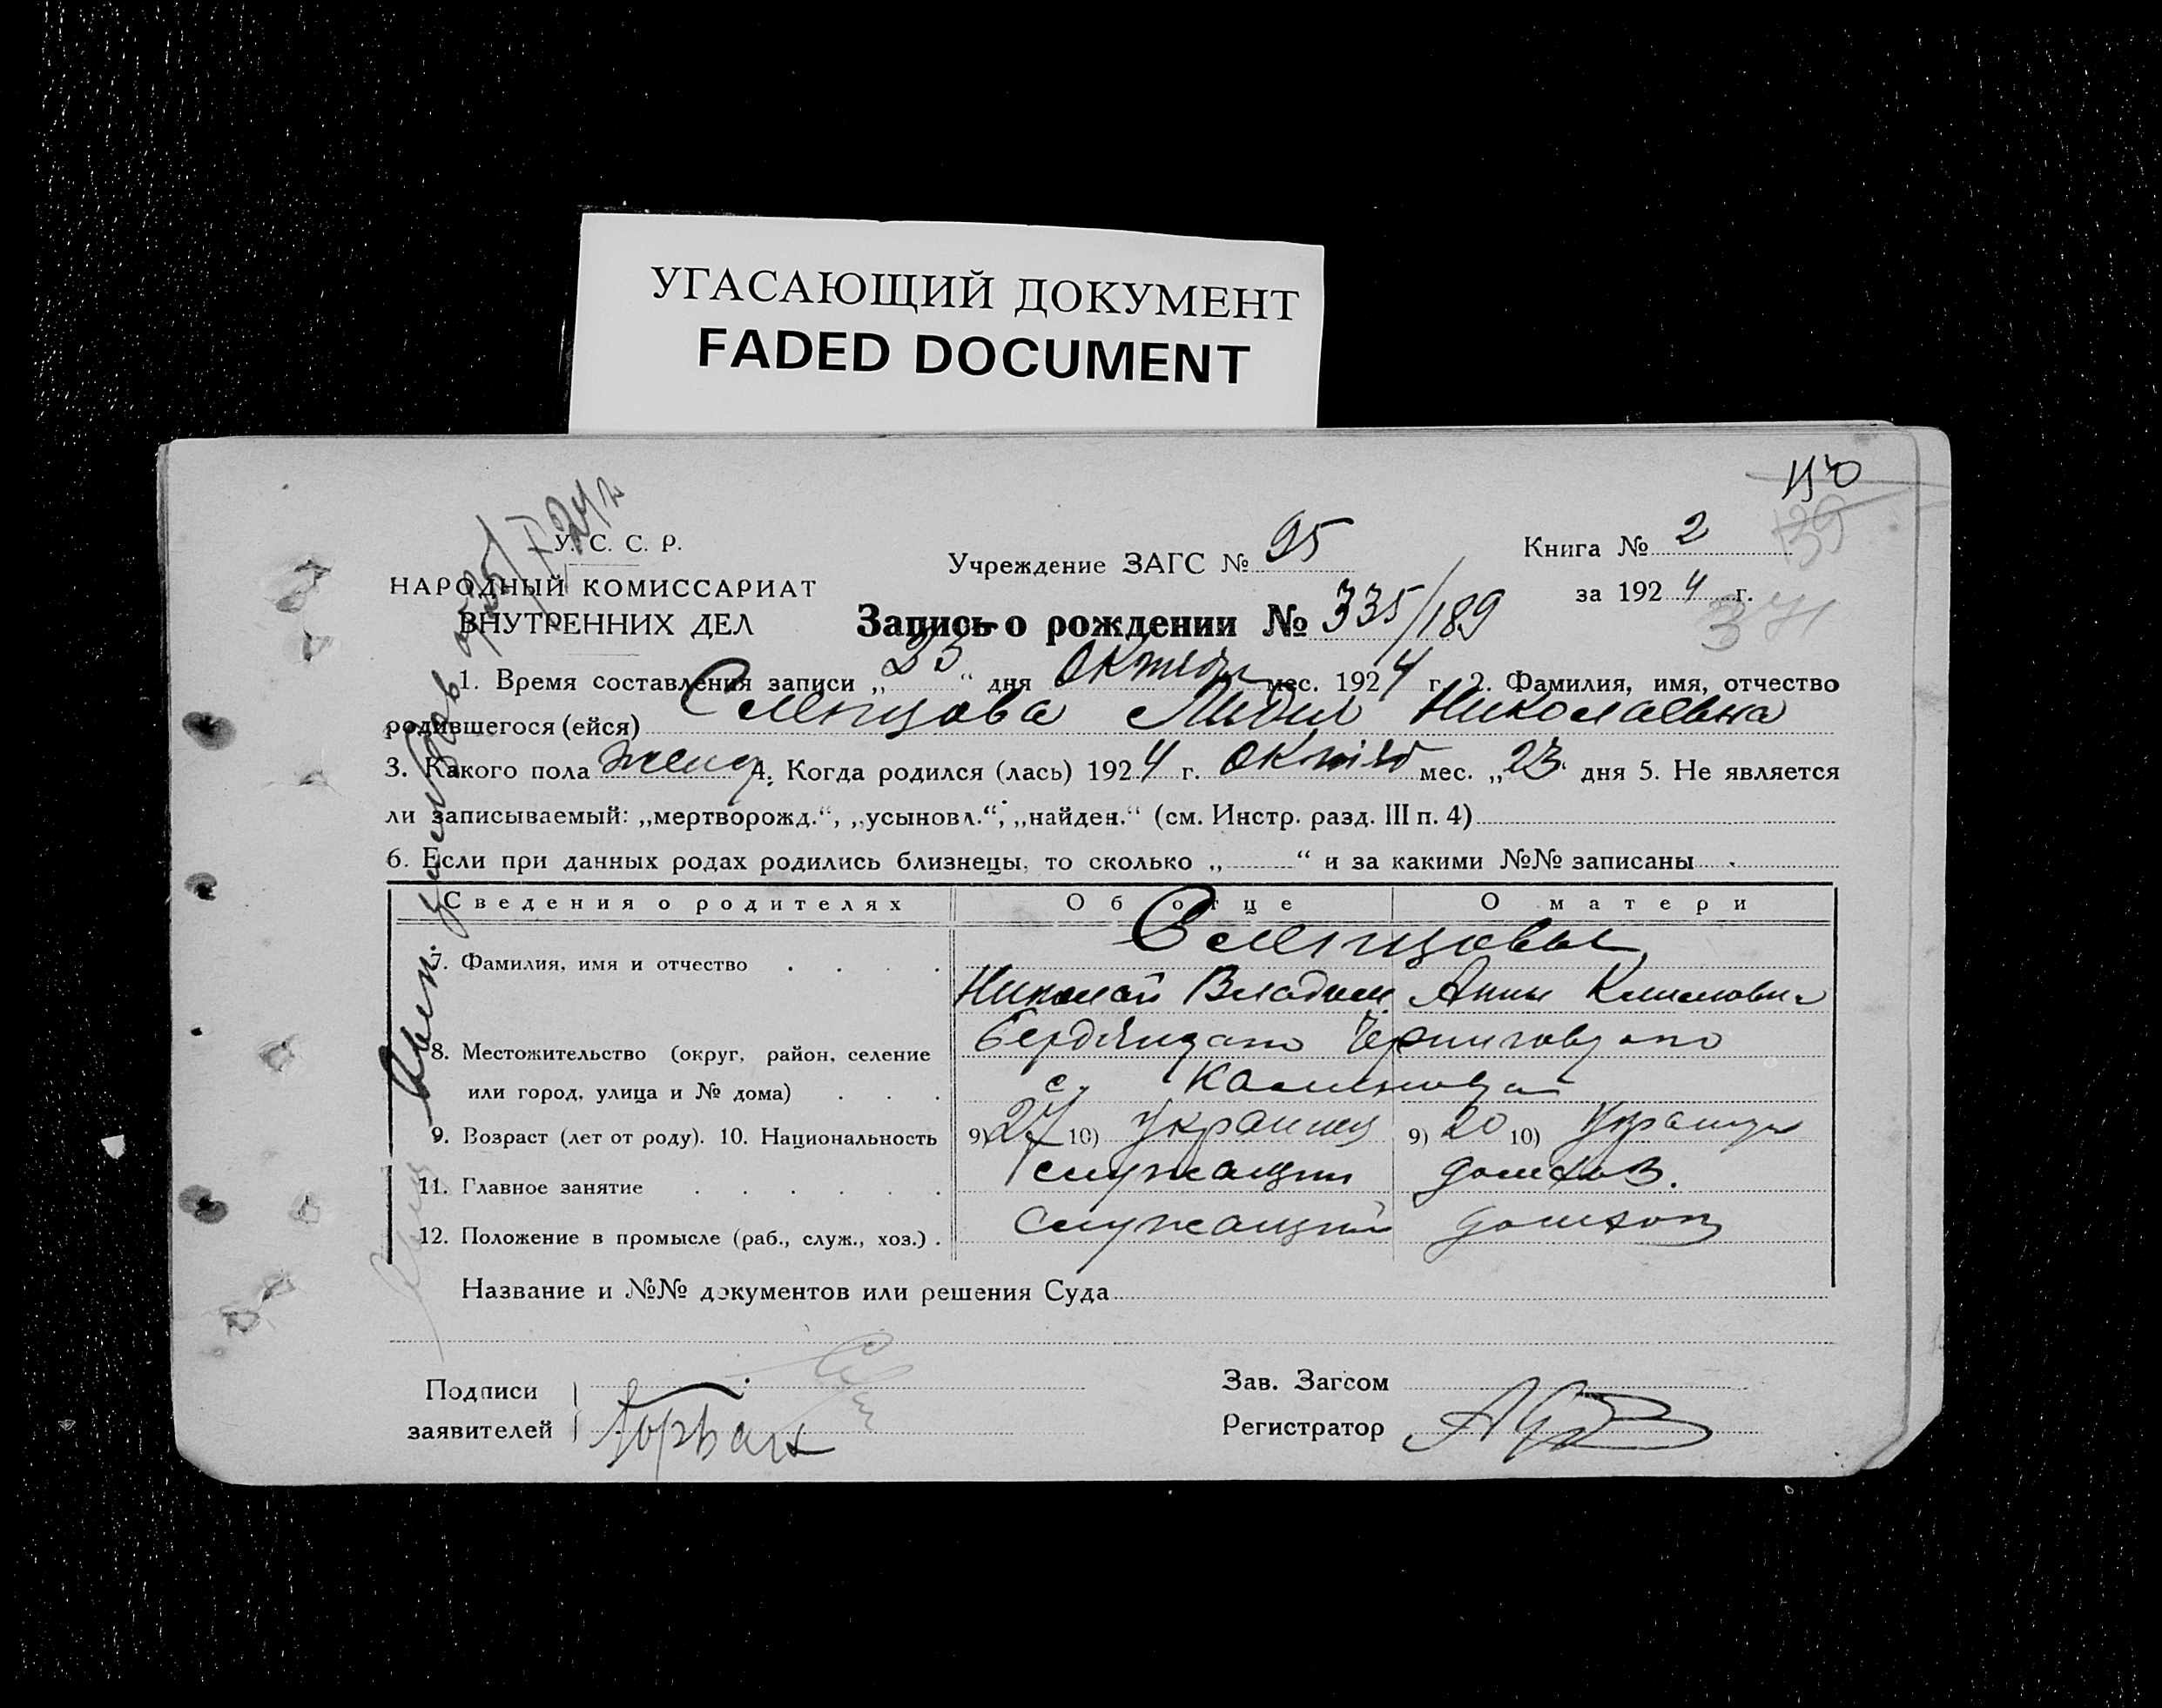 УГАСАЮЩИЙ ДОКУМЕНТ
FADED DOCUMENT
У. С. С. Р.
НАРОДНЫЙ КОМИССАРИАТ
ВНУТРЕННИХ ДЕЛ
Учреждение ЗАГС № 95
Книга № 2
139
за 1924 г.
371
Запись о рождении № 335/189
1. Время составления записи „25“ дня Октября мес. 1924 г. 2. Фамилия, имя, отчество
родившегося (ейся) Николаевна
3. Какого пола женс 4. Когда родился (лась) 1924 г. мес. „23“ дня 5. Не является
ли записываемый: „мертворожд.“, „усыновл.“, „найден.“ (см. Инстр. разд. III п. 4)
6. Если при данных родах родились близнецы, то сколько „ “ и за какими №№ записаны
Сведения о родителях Об отце О матери
7. Фамилия, имя и отчество
Николай Владим Анна
8. Местожительство (округ, район, селение
или город, улица и № дома) с.
9. Возраст (лет от роду). 10. Национальность 9) 27 10) Украинец 9) 20 10)
11. Главное занятие служащий домхоз.
12. Положение в промысле (раб., служ., хоз.) служащий домхоз
Название и №№ документов или решения Суда
Подписи
заявителей Горбань
Зав. Загсом
Регистратор